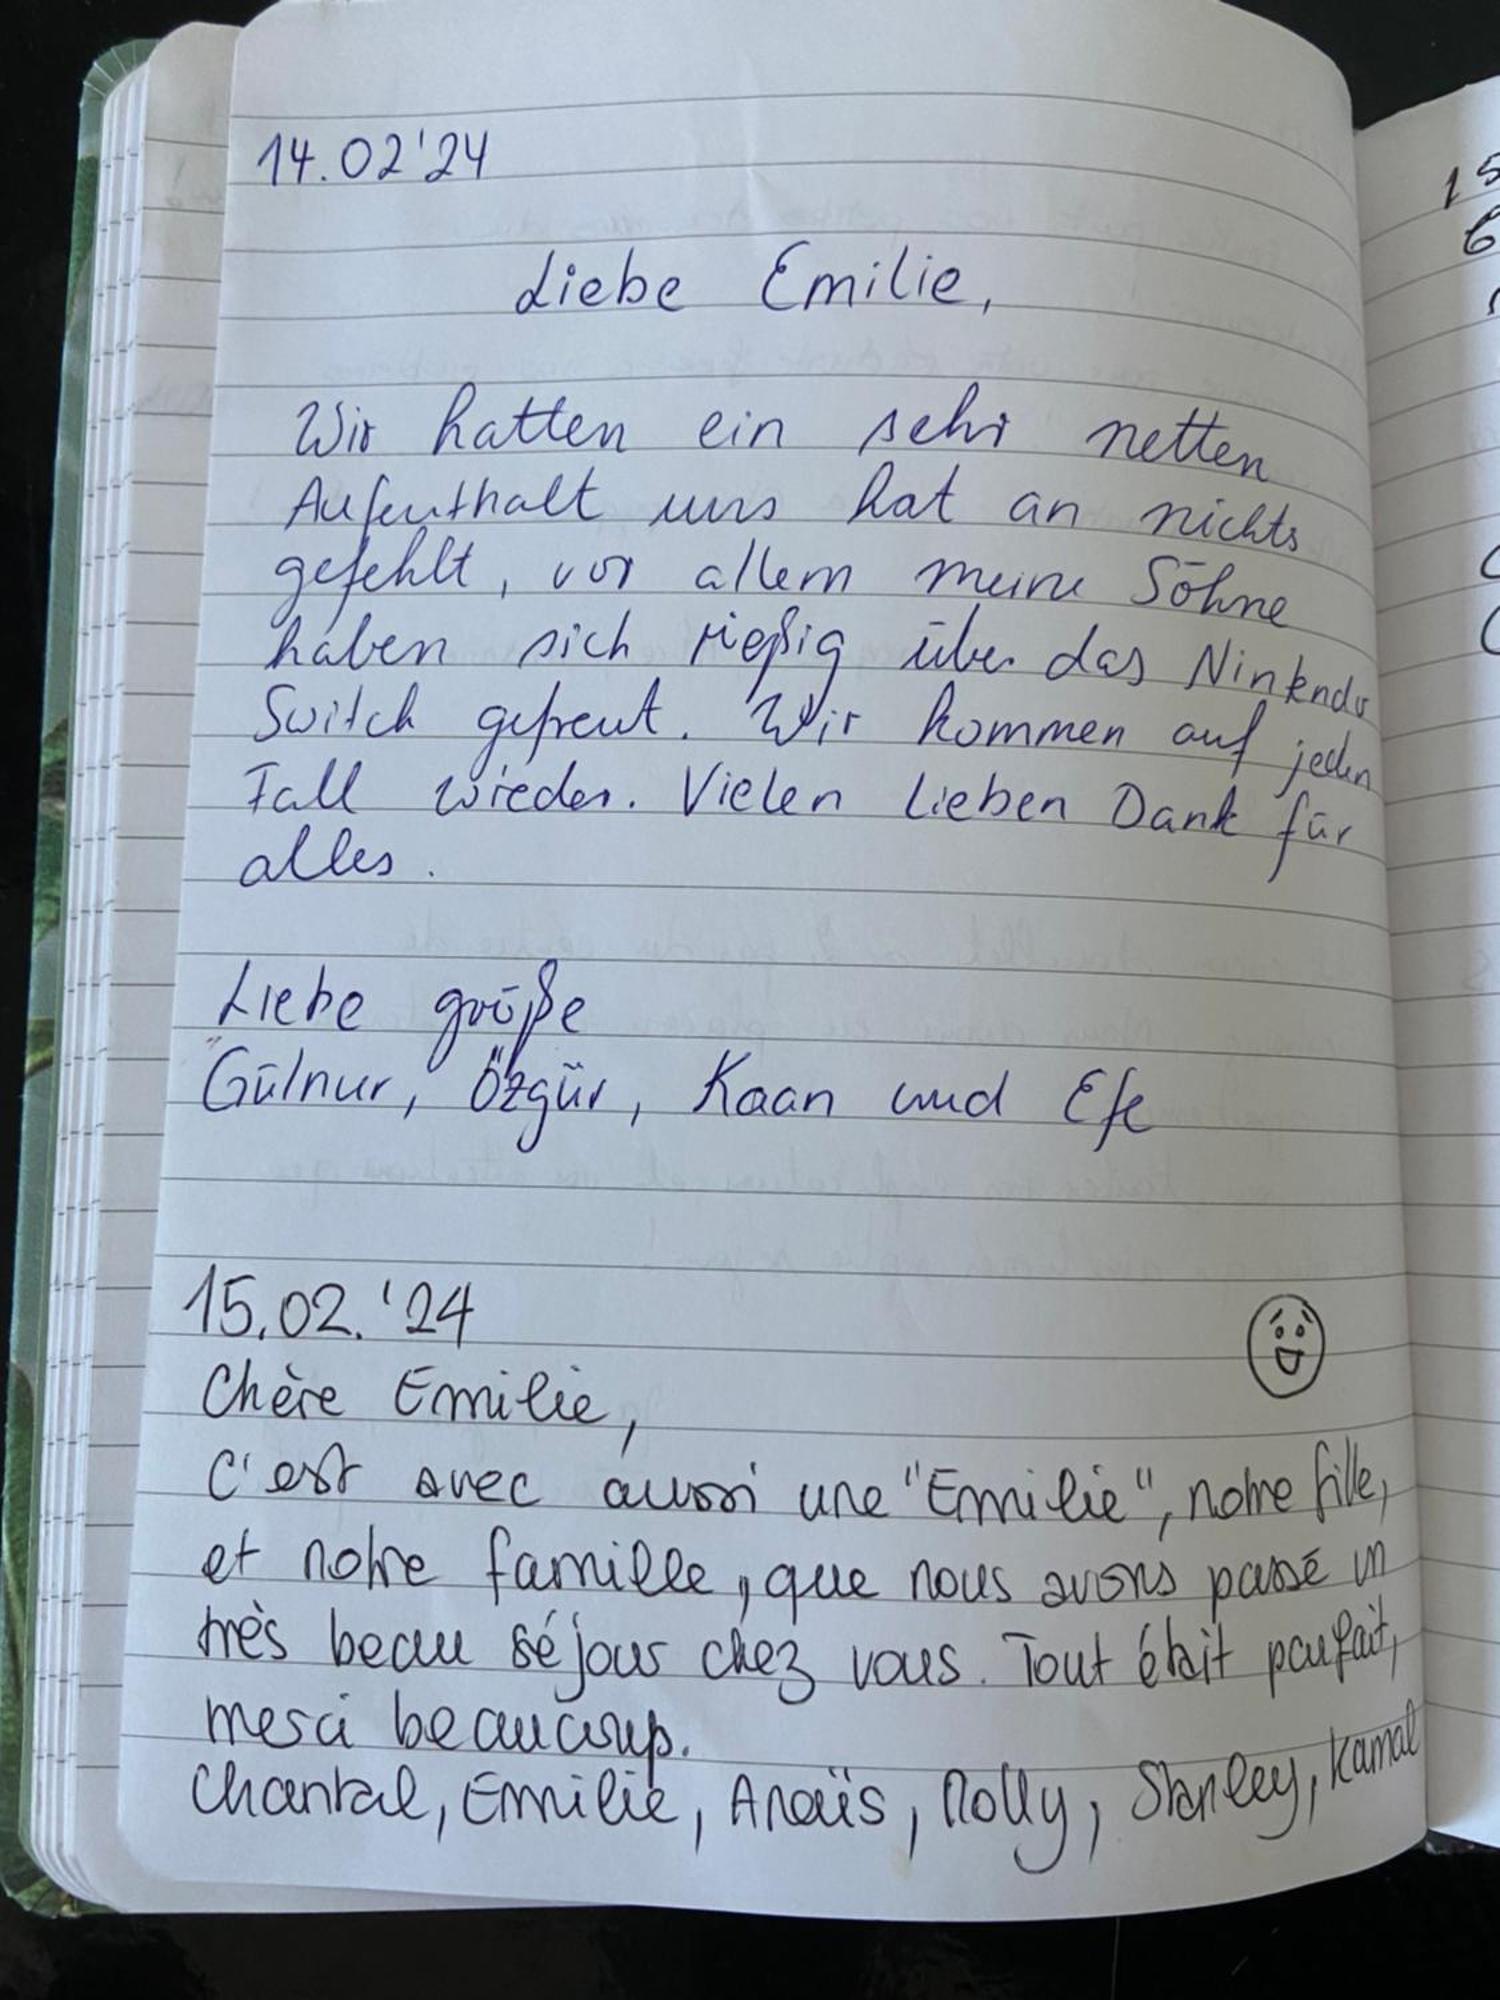 14.02'24
Liebe Emilie,
Wir hatten ein sehr netten
Aufenthalt uns hat an nichts
gefehlt, vor allem meine Söhne
haben sich rießig über das Nintendo
Switch gefreut. Wir kommen auf jeden
Fall wieder. Vielen Lieben Dank für
alles.
Liebe grüße
Gülnur, Özgür, Kaan und Efe
15.02.'24
Chère Emilie,
C'est avec aussi une "Emilie", notre fille,
et notre famille, que nous avons passé un
très beau séjour chez vous. Tout était parfait,
merci beaucoup.
Chantal, Emilie, Anaïs, Molly, Stanley, Kamal